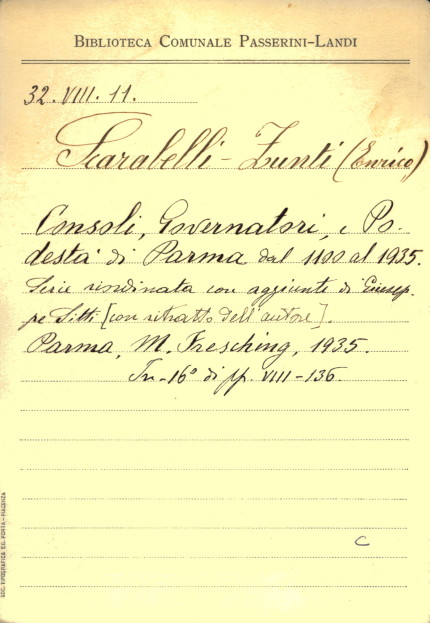 BIBLIOTECA COMUNALE PASSERINI-LANDI
32. VIII. 11.
Scarabelli-Zunti (Enrico)
Consoli, Governatori, e Po-
destà di Parma dal 1100 al 1935.
Serie riordinata con aggiunte di Giusep-
pe Sitti [con ritratto dell'autore].
Parma, M. Fresching, 1935.
In-16° di pp. VIII-136.
C
SOC. TIPOGRAFICA ED. PORTA - PIACENZA